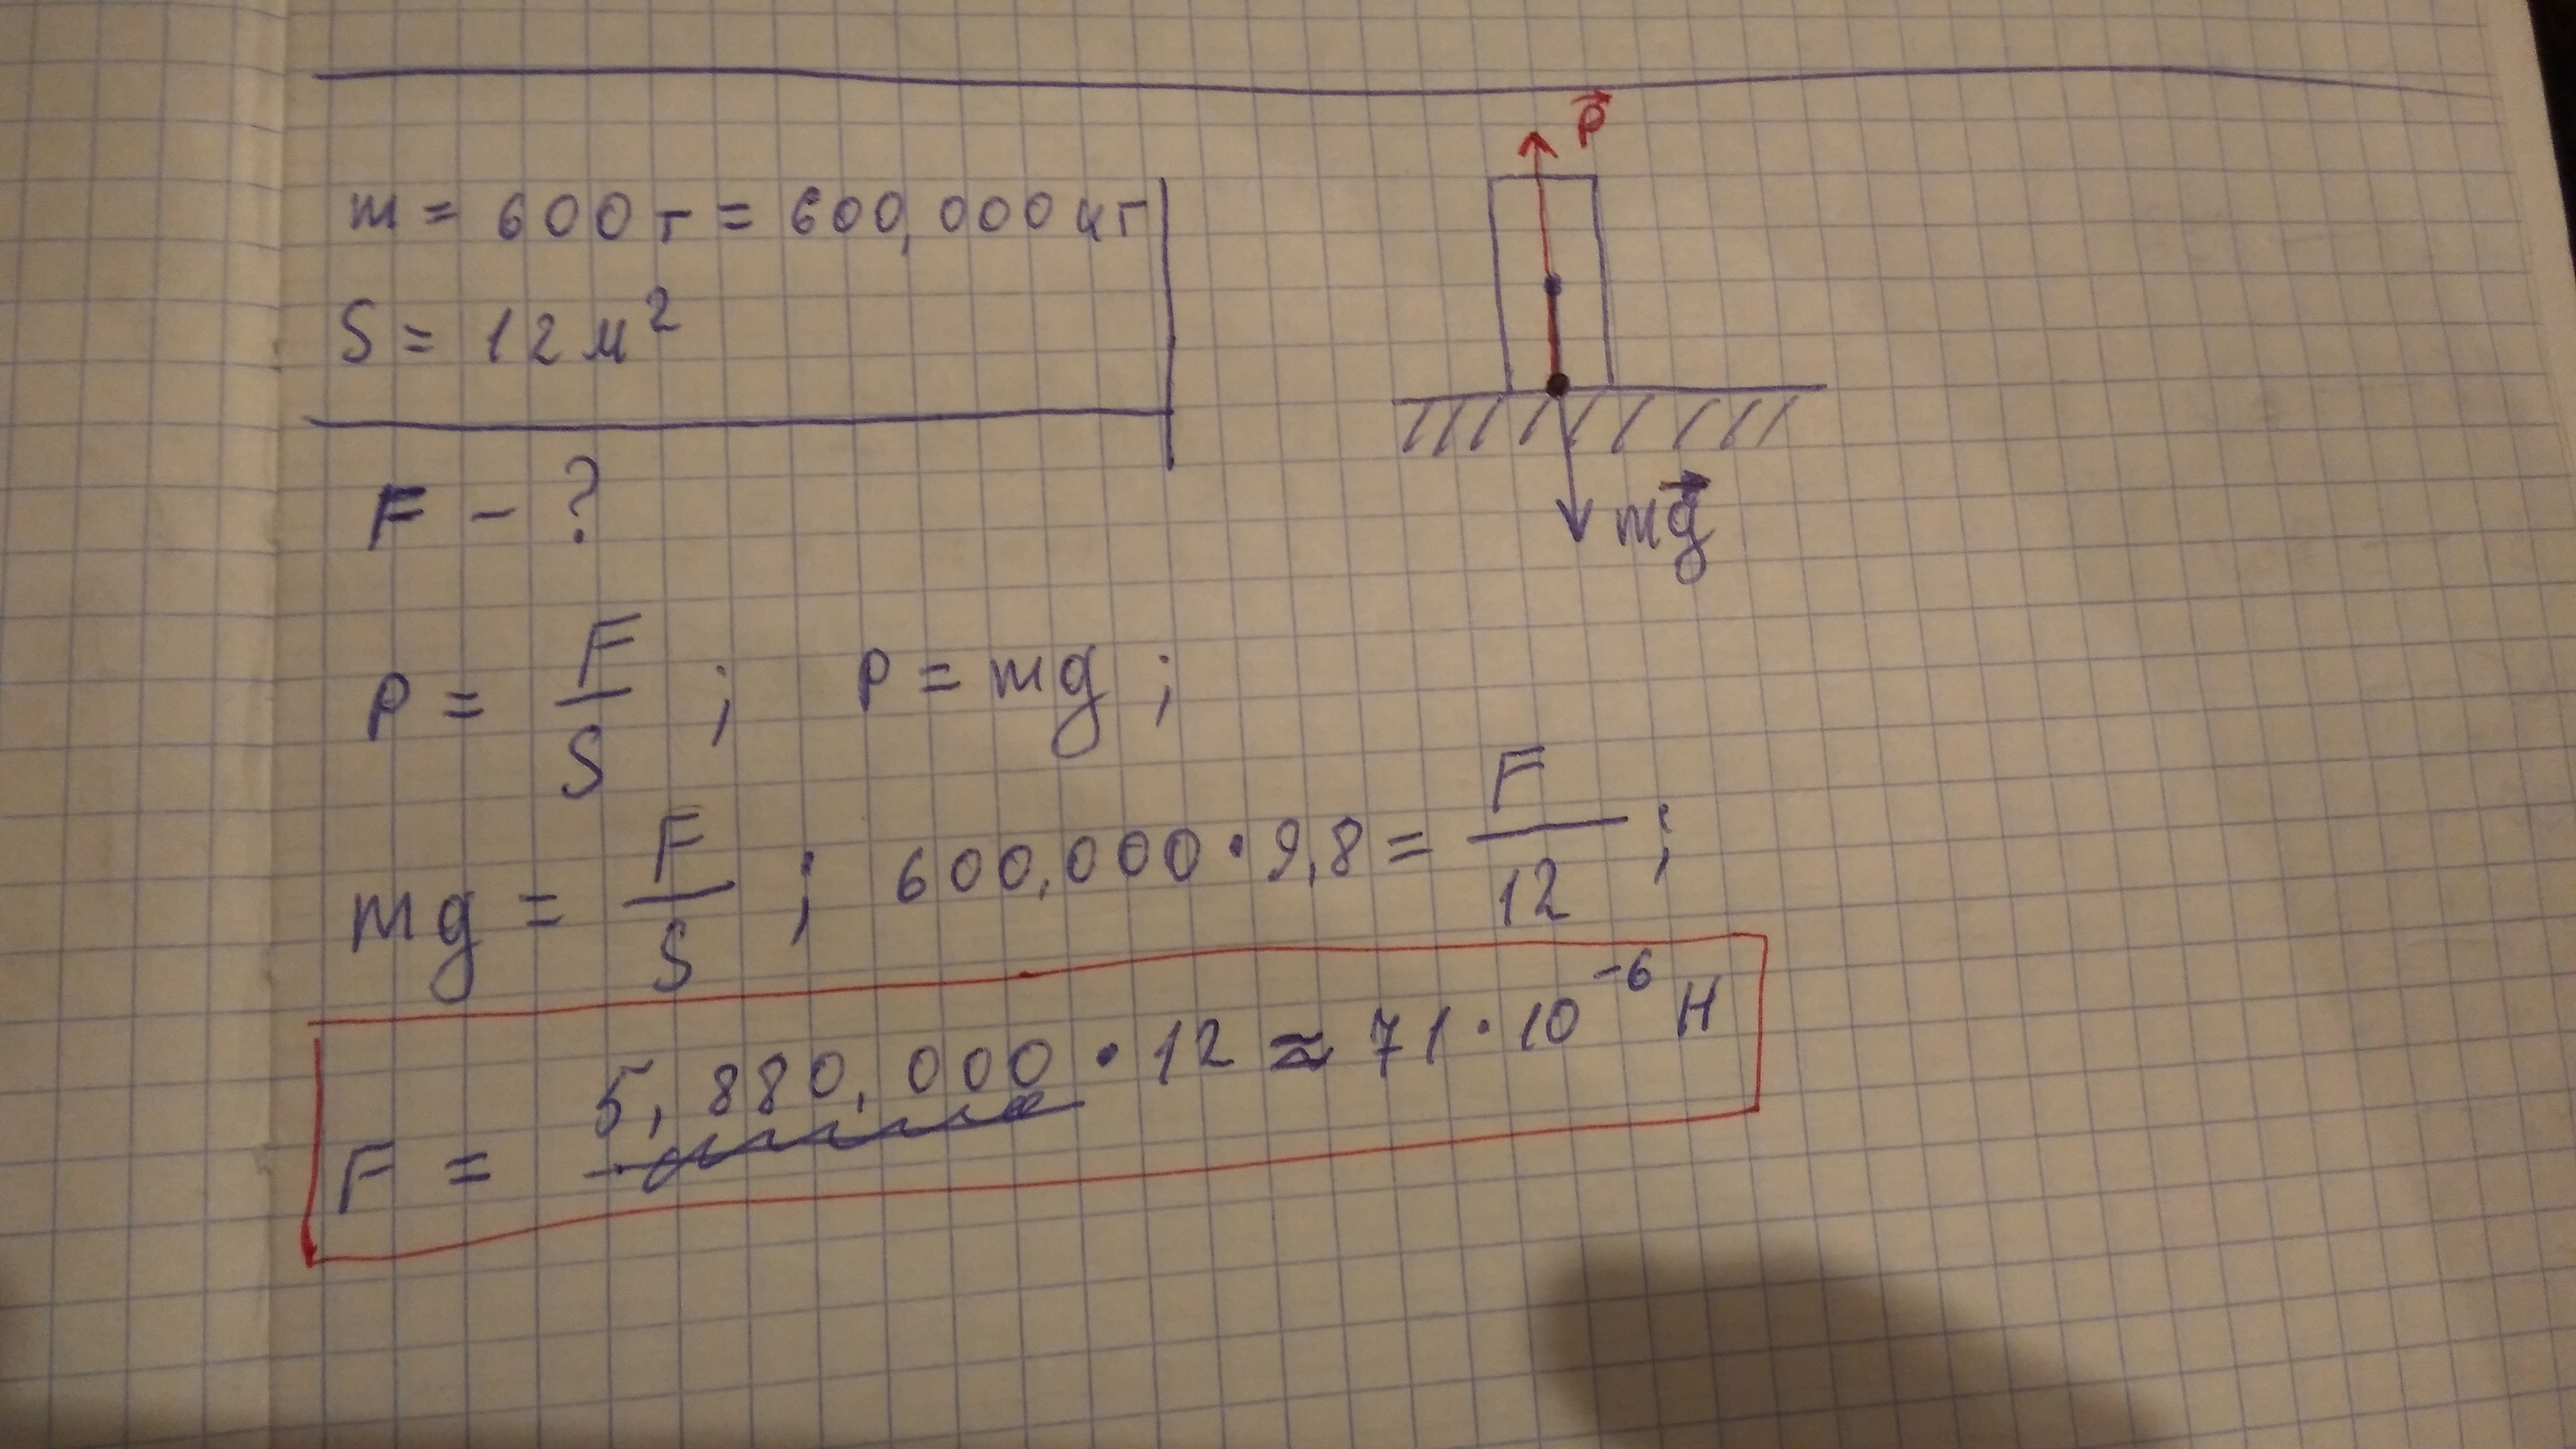 m = 600 г = 600,000 кг
S = 12 м²
F - ?
P⃗
mg⃗
P = F/S ; P = mg ;
mg = F/S ; 600,000 · 9,8 = F/12 ;
F = 5,880,000 · 12 ≈ 71 · 10⁻⁶ Н